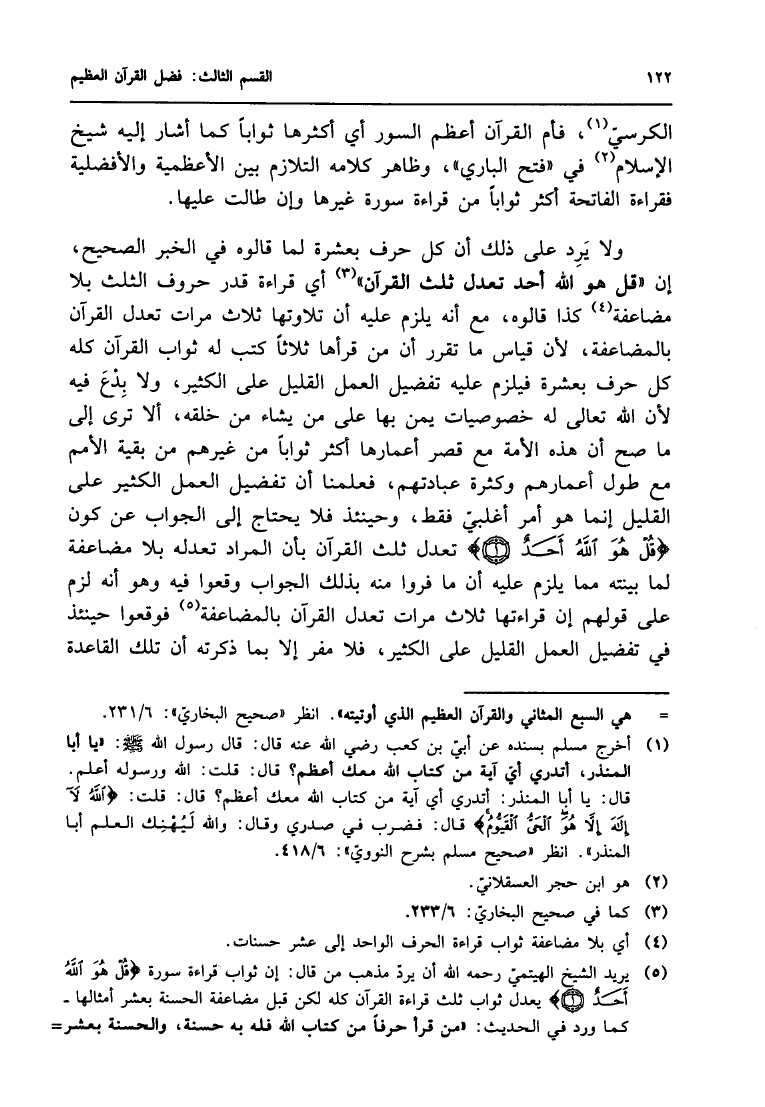 ١٢٢ القسم الثالث: فضل القرآن العظيم
الكرسيّ(١)، فأم القرآن أعظم السور أي أكثرها ثواباً كما أشار إليه شيخ
الإسلام(٢) في «فتح الباري»، وظاهر كلامه التلازم بين الأعظمية والأفضلية
فقراءة الفاتحة أكثر ثواباً من قراءة سورة غيرها وإن طالت عليها.
ولا يَرِد على ذلك أن كل حرف بعشرة لما قالوه في الخبر الصحيح،
إن «قل هو الله أحد تعدل ثلث القرآن»(٣) أي قراءة قدر حروف الثلث بلا
مضاعفة(٤) كذا قالوه، مع أنه يلزم عليه أن تلاوتها ثلاث مرات تعدل القرآن
بالمضاعفة، لأن قياس ما تقرر أن من قرأها ثلاثاً كتب له ثواب القرآن كله
كل حرف بعشرة فيلزم عليه تفضيل العمل القليل على الكثير، ولا بِدْعَ فيه
لأن الله تعالى له خصوصيات يمن بها على من يشاء من خلقه، ألا ترى إلى
ما صح أن هذه الأمة مع قصر أعمارها أكثر ثواباً من غيرهم من بقية الأمم
مع طول أعمارهم وكثرة عبادتهم، فعلمنا أن تفضيل العمل الكثير على
القليل إنما هو أمر أغلبيّ فقط، وحينئذ فلا يحتاج إلى الجواب عن كون
﴿قُلْ هُوَ ٱللَّهُ أَحَدٌ ۝١﴾ تعدل ثلث القرآن بأن المراد تعدله بلا مضاعفة
لما بينته مما يلزم عليه أن ما فروا منه بذلك الجواب وقعوا فيه وهو أنه لزم
على قولهم إن قراءتها ثلاث مرات تعدل القرآن بالمضاعفة(٥) فوقعوا حينئذ
في تفضيل العمل القليل على الكثير، فلا مفر إلا بما ذكرته أن تلك القاعدة
= هي السبع المثاني والقرآن العظيم الذي أوتيته». انظر «صحيح البخاريّ»: ٢٣١/٦.
(١) أخرج مسلم بسنده عن أبيّ بن كعب رضي الله عنه قال: قال رسول الله ﷺ: «يا أبا
المنذر، أتدري أيّ آية من كتاب الله معك أعظم؟ قال: قلت: الله ورسوله أعلم.
قال: يا أبا المنذر: أتدري أي آية من كتاب الله معك أعظم؟ قال: قلت: ﴿ٱللَّهُ لَآ
إِلَٰهَ إِلَّا هُوَ ٱلْحَىُّ ٱلْقَيُّومُ﴾ قال: فضرب في صدري وقال: والله لَيُهْنِك العلم أبا
المنذر». انظر «صحيح مسلم بشرح النوويّ»: ٤١٨/٦.
(٢) هو ابن حجر العسقلانيّ.
(٣) كما في صحيح البخاريّ: ٢٣٣/٦.
(٤) أي بلا مضاعفة ثواب قراءة الحرف الواحد إلى عشر حسنات.
(٥) يريد الشيخ الهيتميّ رحمه الله أن يردّ مذهب من قال: إن ثواب قراءة سورة ﴿قُلْ هُوَ ٱللَّهُ
أَحَدٌ ۝١﴾ يعدل ثواب ثلث قراءة القرآن كله لكن قبل مضاعفة الحسنة بعشر أمثالها -
كما ورد في الحديث: «من قرأ حرفاً من كتاب الله فله به حسنة، والحسنة بعشر=